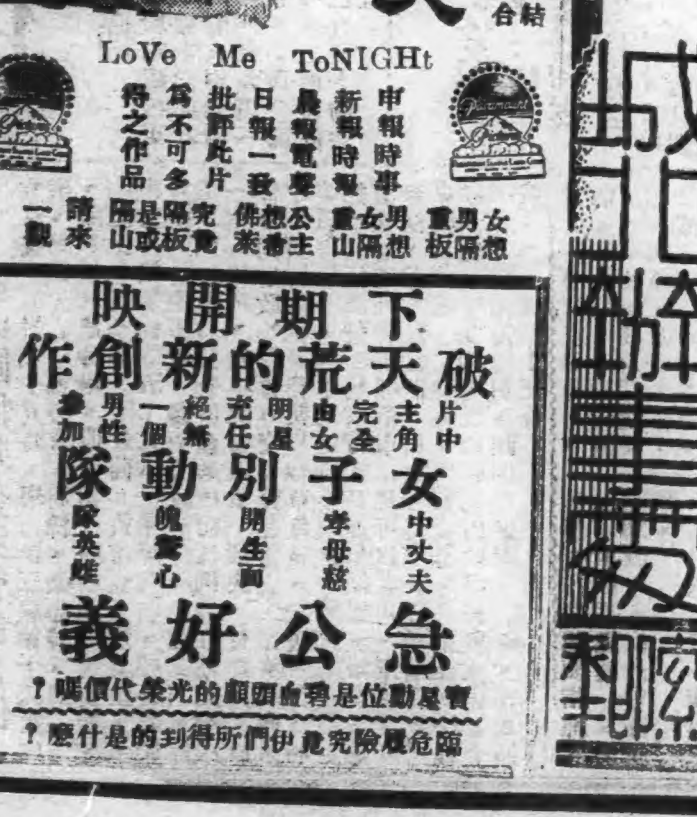 結合
LoVe Me ToNIGHt
申報時事
新報時報
晨報電聲
日報一致
批評此片
為不可多
得之作品
女想
男隔
重板
男想
女隔
重山
公主
想希
佛萊
究竟
隔板
是或
隔山
請來
一觀
Paramount
下期開映
破天荒的新創作
片中
主角
完全
由女
明星
充任
絕無
一個
男性
參加
女子別動隊
中丈夫
孝母慈
開生面
魄驚心
隊英雄
急公好義
寶星勳位是碧血頭顱的光榮代價嗎？
臨危履險究竟伊們所得到的是什麼？